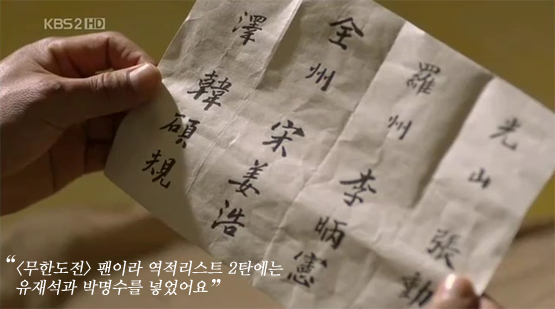 KBS2 HD
光山 張動
羅州 李昞憲
全州 宋姜浩
澤 韓碩規
“〈무한도전〉 팬이라 역적리스트 2탄에는
유재석과 박명수를 넣었어요”